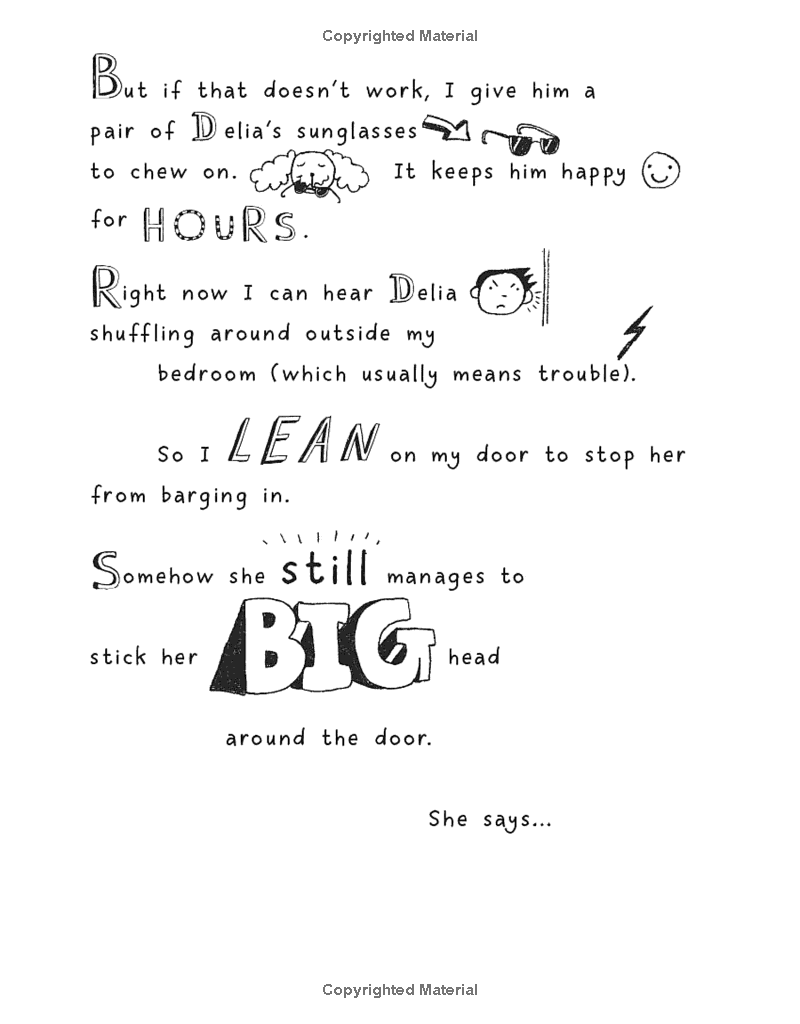 Copyrighted Material
But if that doesn't work, I give him a
pair of Delia's sunglasses
to chew on. It keeps him happy
for HOURS.
Right now I can hear Delia
shuffling around outside my
bedroom (which usually means trouble).
So I LEAN on my door to stop her
from barging in.
Somehow she still manages to
stick her BIG head
around the door.
She says...
Copyrighted Material